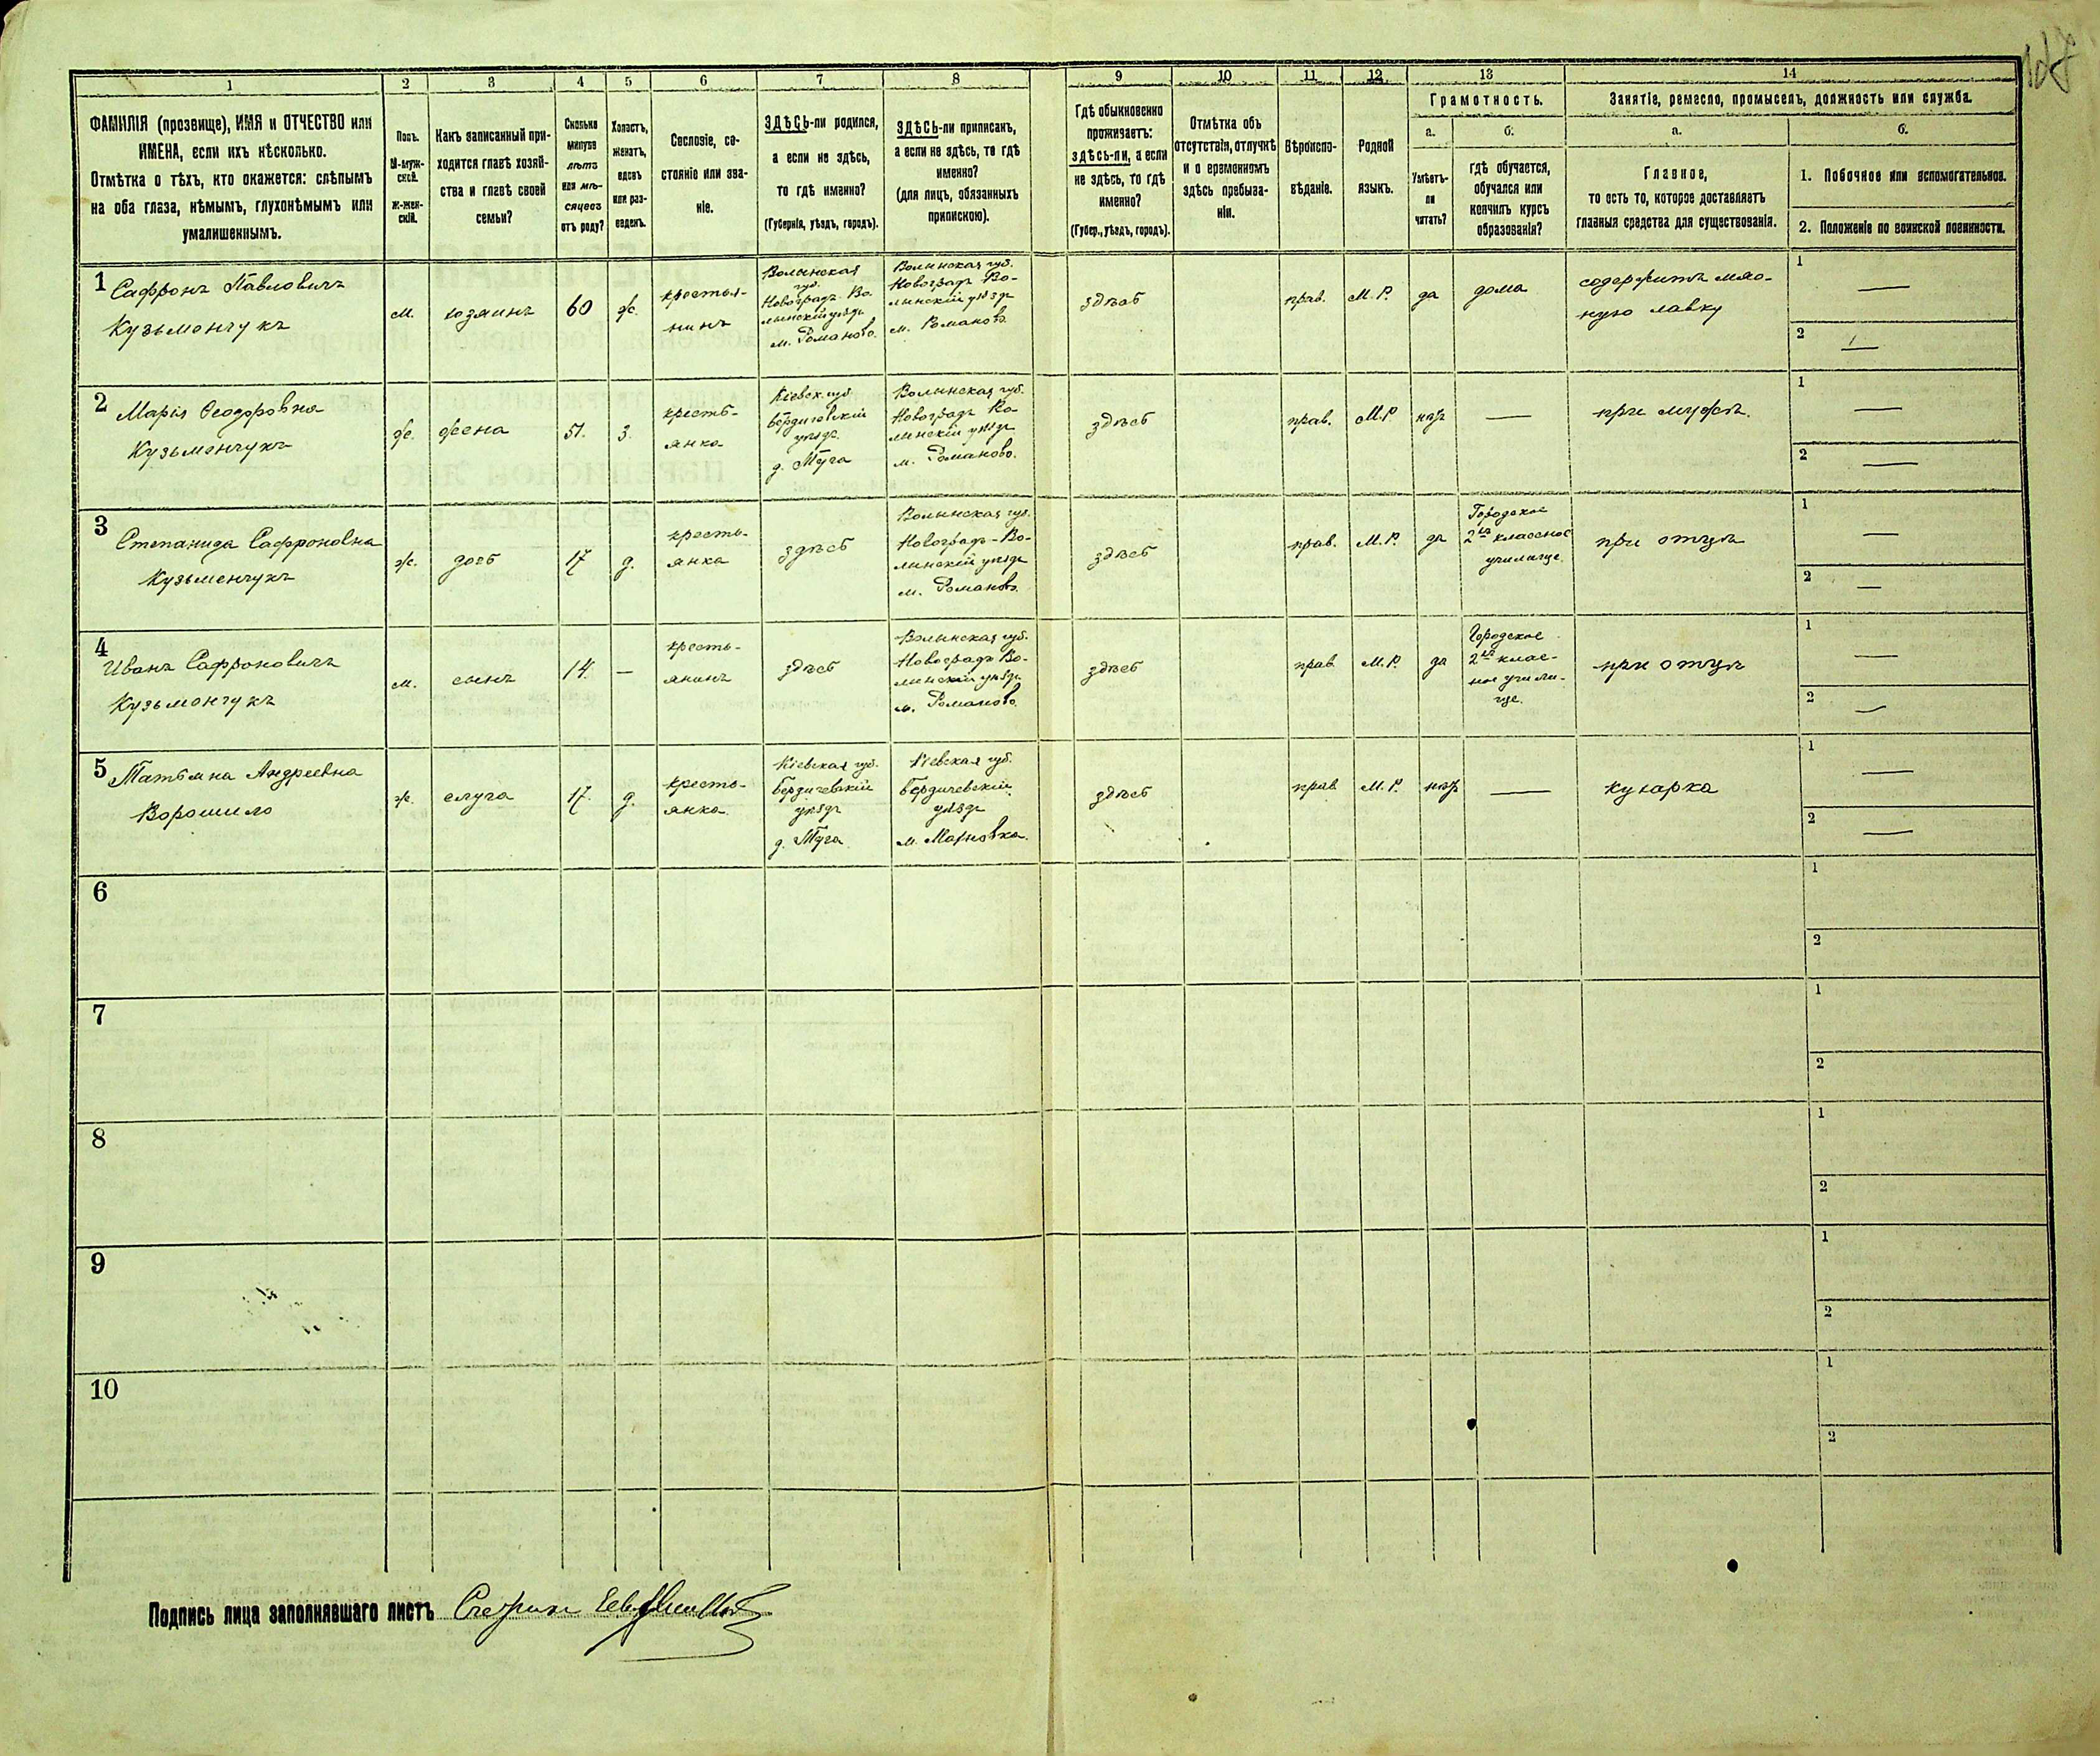 127
1 2 3 4 5 6 7 8 9 10 11 12 13 14
ФАМИЛІЯ (прозвище), ИМЯ и ОТЧЕСТВО или
ИМЕНА, если ихъ нѣсколько.
Отмѣтка о тѣхъ, кто окажется: слѣпымъ
на оба глаза, нѣмымъ, глухонѣмымъ или
умалишеннымъ.
Полъ.
М-муж-
ской.
Ж-жен-
скій.
Какъ записанный при-
ходится главѣ хозяй-
ства и главѣ своей
семьи?
Сколько
минуло
лѣтъ
или мѣ-
сяцевъ
отъ роду?
Холостъ,
женатъ,
вдовъ
или раз-
веденъ.
Сословіе, со-
стояніе или зва-
ніе.
ЗДѢСЬ-ли родился,
а если не здѣсь,
то гдѣ именно?
(Губернія, уѣздъ, городъ).
ЗДѢСЬ-ли приписанъ,
а если не здѣсь, то гдѣ
именно?
(для лицъ, обязанныхъ
припискою).
Гдѣ обыкновенно
проживаетъ:
здѣсь-ли, а если
не здѣсь, то гдѣ
именно?
(Губер., уѣздъ, городъ).
Отмѣтка объ
отсутствіи, отлучкѣ
и о временномъ
здѣсь пребыва-
ніи.
Вѣроиспо-
вѣданіе.
Родной
языкъ.
Грамотность.
а. б.
Умѣетъ-
ли
читать?
гдѣ обучается,
обучался или
кончилъ курсъ
образованія?
Занятіе, ремесло, промыселъ, должность или служба.
а. б.
Главное,
то есть то, которое доставляетъ
главныя средства для существованія.
1. Побочное или вспомогательное.
2. Положеніе по воинской повинности.
1 Сафронъ Павловичъ
Кузьмончукъ
м.
хозяинъ
60
ж.
крестья-
нинъ
Волынская
губ.
Новоградъ Во-
лынскій уѣздъ
м. Романовъ.
Волынская губ.
Новоградъ Во-
лынскій уѣздъ
м. Романовъ.
здѣсь
прав.
М. Р.
да
дома
содержитъ мяс-
ную лавку
1 —
2 —
2 Марія Ѳеодоровна
Кузьменчукъ
ж.
жена
51.
з.
кресть-
янка
Кіевск. губ.
Бердичевскій
уѣздъ.
д. Туча
Волынская губ.
Новоградъ Во-
линскій уѣздъ
м. Романовъ.
здѣсь
прав.
М. Р.
нѣтъ
—
при мужѣ.
1 —
2 —
3 Степанида Сафроновна
Кузьменчукъ
ж.
дочь
17
д.
кресть-
янка
здѣсь
Волынская губ.
Новоградъ-Во-
линскій уѣздъ
м. Романовъ.
здѣсь
прав.
М. Р.
да
Городское
2хъ классное
училище.
при отцѣ
1 —
2 —
4 Иванъ Сафроновичъ
Кузьмончукъ
м.
сынъ
14.
—
кресть-
янинъ
здѣсь
Волынская губ.
Новоградъ Во-
линскій уѣздъ
м. Романовъ.
здѣсь
прав
М. Р.
да
Городское
2хъ клас-
ное учили-
ще.
при отцѣ
1 —
2 —
5 Татьяна Андреевна
Ворошило
ж.
слуга
17.
д.
кресть-
янка.
Кіевская губ.
Бердичевскій
уѣздъ
д. Туча.
Кіевская губ.
Бердичевскій
уѣздъ
м. Махновка.
здѣсь
прав
М. Р.
нѣтъ
—
кухарка
1 —
2 —
6
1
2
7
1
2
8
1
2
9
1
2
10
1
2
Подпись лица заполнявшаго листъ